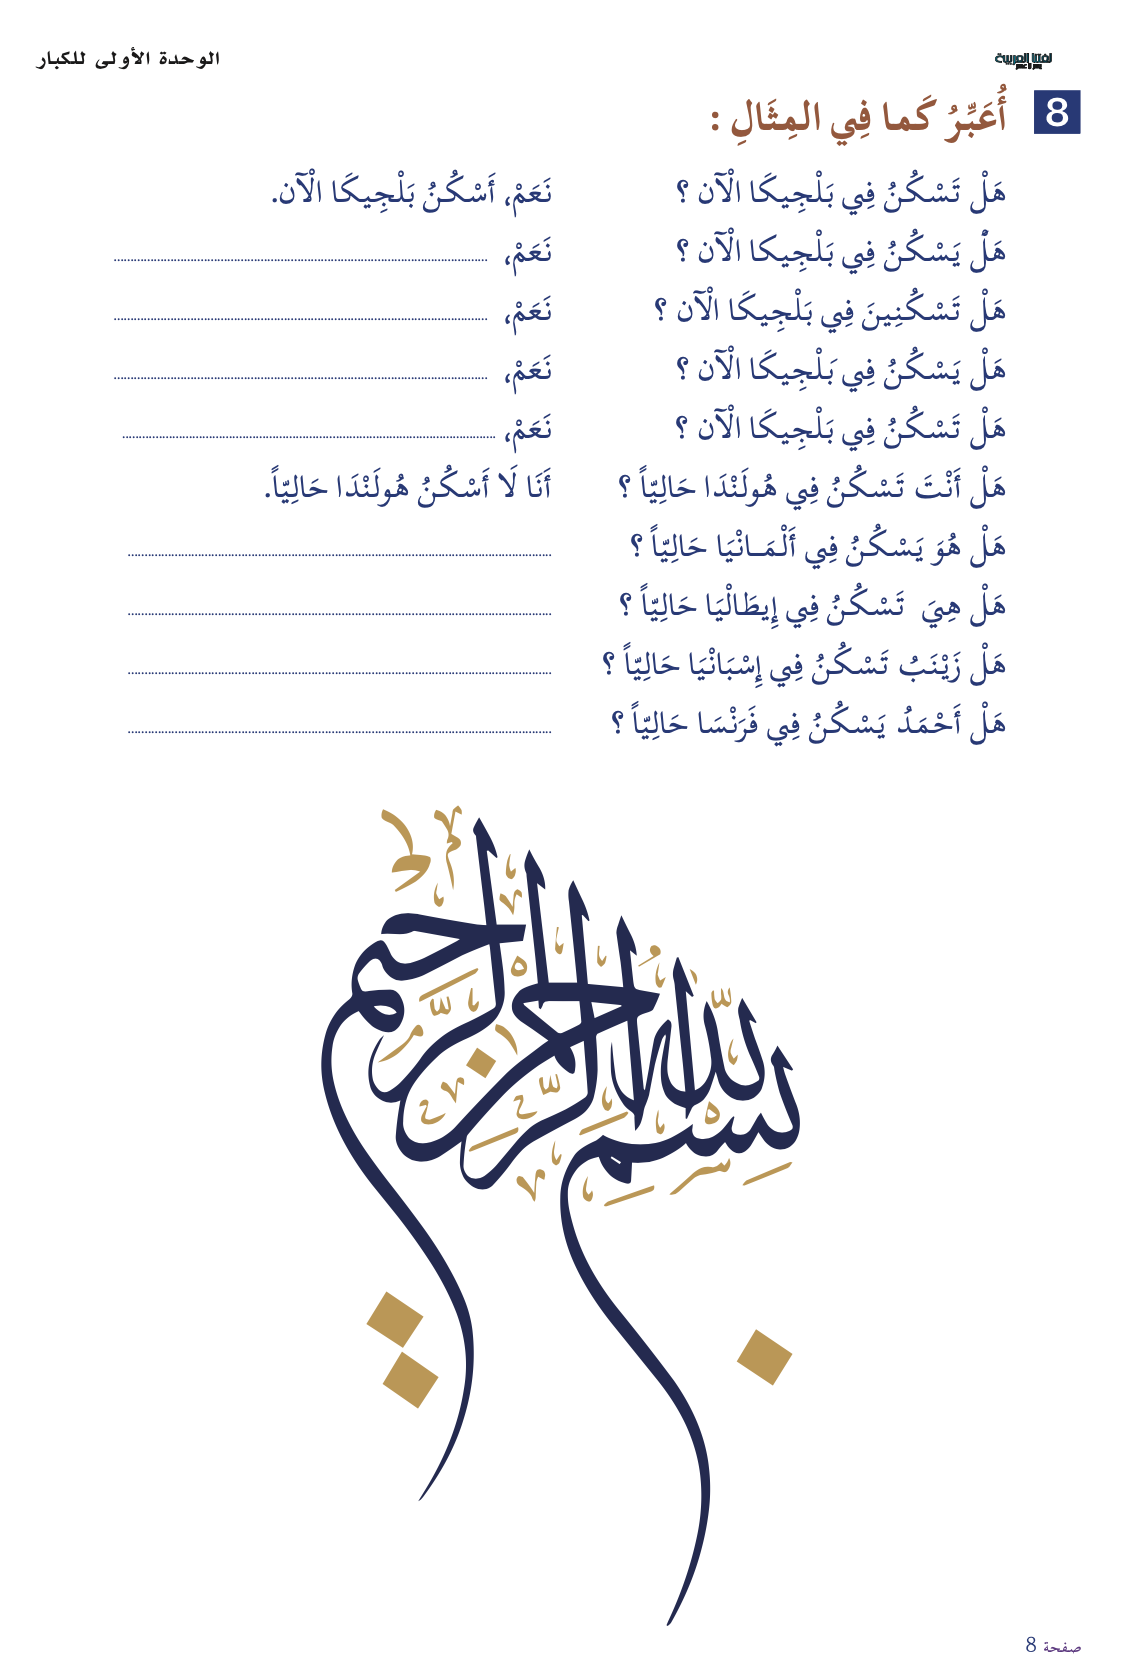 لغتنا العربية
الوحدة الأولى للكبار
8 أُعَبِّرُ كَما فِي المِثَالِ :
هَلْ تَسْكُنُ فِي بَلْجِيكَا الْآن ؟ نَعَمْ، أَسْكُنُ بَلْجِيكَا الْآن.
هَلْ يَسْكُنُ فِي بَلْجِيكا الْآن ؟ نَعَمْ، ........................
هَلْ تَسْكُنِينَ فِي بَلْجِيكَا الْآن ؟ نَعَمْ، ........................
هَلْ يَسْكُنُ فِي بَلْجِيكَا الْآن ؟ نَعَمْ، ........................
هَلْ تَسْكُنُ فِي بَلْجِيكَا الْآن ؟ نَعَمْ، ........................
هَلْ أَنْتَ تَسْكُنُ فِي هُولَنْدَا حَالِيّاً ؟ أَنَا لَا أَسْكُنُ هُولَنْدَا حَالِيّاً.
هَلْ هُوَ يَسْكُنُ فِي أَلْمَـانْيَا حَالِيّاً ؟ ........................
هَلْ هِيَ تَسْكُنُ فِي إِيطَالْيَا حَالِيّاً ؟ ........................
هَلْ زَيْنَبُ تَسْكُنُ فِي إِسْبَانْيَا حَالِيّاً ؟ ........................
هَلْ أَحْمَدُ يَسْكُنُ فِي فَرَنْسَا حَالِيّاً ؟ ........................
بِسْمِ اللَّهِ الرَّحْمَنِ الرَّحِيمِ
صفحة 8